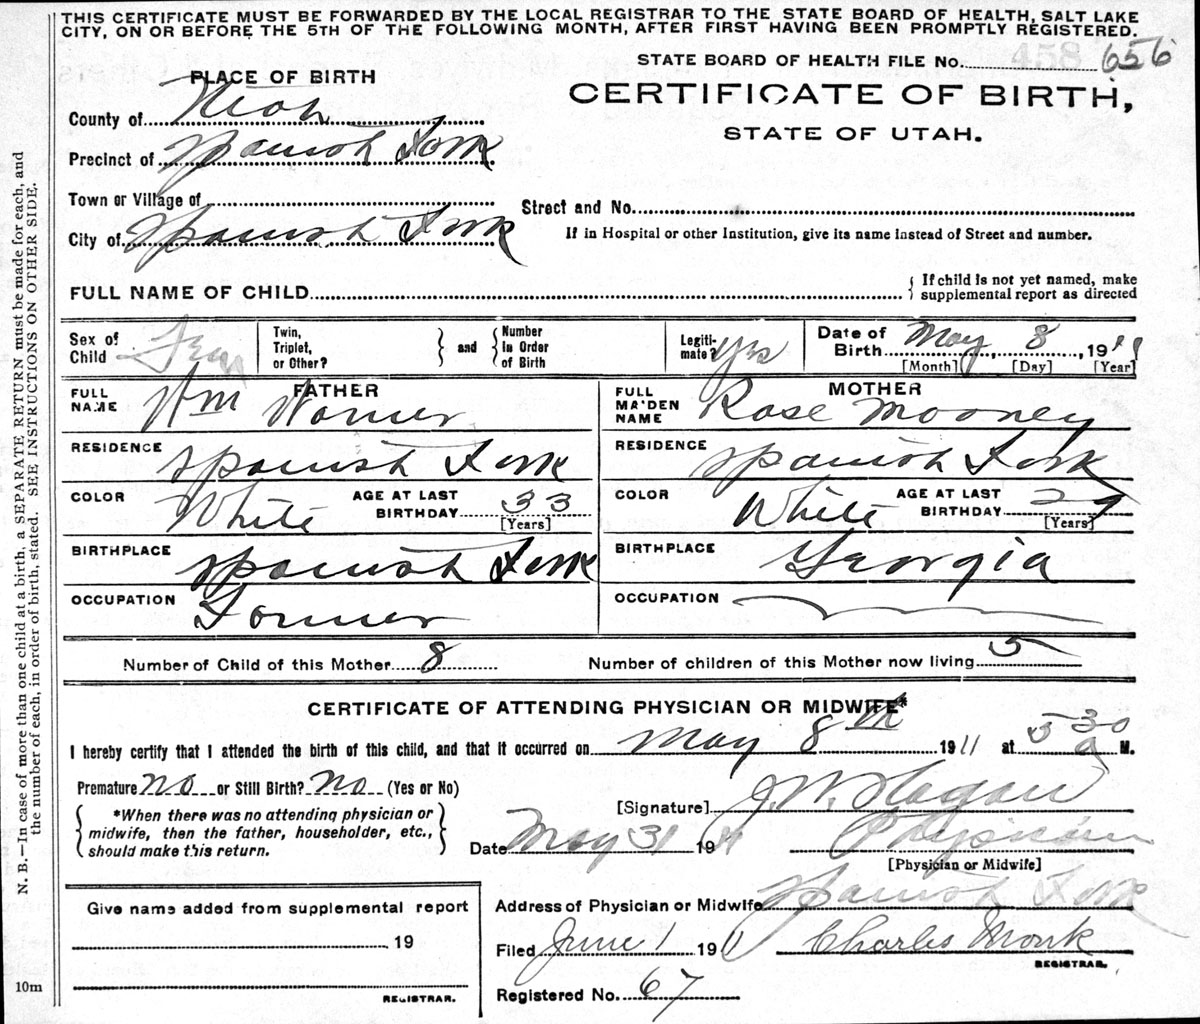 THIS CERTIFICATE MUST BE FORWARDED BY THE LOCAL REGISTRAR TO THE STATE BOARD OF HEALTH, SALT LAKE
CITY, ON OR BEFORE THE 5TH OF THE FOLLOWING MONTH, AFTER FIRST HAVING BEEN PROMPTLY REGISTERED.
STATE BOARD OF HEALTH FILE NO. 656
PLACE OF BIRTH
CERTIFICATE OF BIRTH,
STATE OF UTAH.
County of Utah
Precinct of Spanish Fork
Town or Village of
Street and No.
City of Spanish Fork
If in Hospital or other Institution, give its name instead of Street and number.
FULL NAME OF CHILD
If child is not yet named, make
supplemental report as directed
Sex of Child Fem
Twin, Triplet, or Other? and Number in Order of Birth
Legiti-mate? Yes
Date of Birth May 8, 1911
[Month] [Day] [Year]
FATHER
FULL NAME Wm Warner
MOTHER
FULL MAIDEN NAME Rose Mooney
RESIDENCE Spanish Fork
RESIDENCE Spanish Fork
COLOR White AGE AT LAST BIRTHDAY 33 [Years]
COLOR White AGE AT LAST BIRTHDAY 29 [Years]
BIRTHPLACE Spanish Fork
BIRTHPLACE Georgia
OCCUPATION Farmer
OCCUPATION
Number of Child of this Mother 8 Number of children of this Mother now living 5
CERTIFICATE OF ATTENDING PHYSICIAN OR MIDWIFE*
I hereby certify that I attended the birth of this child, and that it occurred on May 8th 1911 at 5 30 a M.
Premature no or Still Birth? no (Yes or No)
*When there was no attending physician or
midwife, then the father, householder, etc.,
should make this return.
[Signature] J. W. Hagan
Date May 31 1911 Physician
[Physician or Midwife]
Give name added from supplemental report
19
REGISTRAR.
Address of Physician or Midwife Spanish Fork
Filed June 1 1911 Charles Monk
REGISTRAR.
Registered No. 67
10m
N. B.—In case of more than one child at a birth, a SEPARATE RETURN must be made for each, and
the number of each, in order of birth, stated. SEE INSTRUCTIONS ON OTHER SIDE.